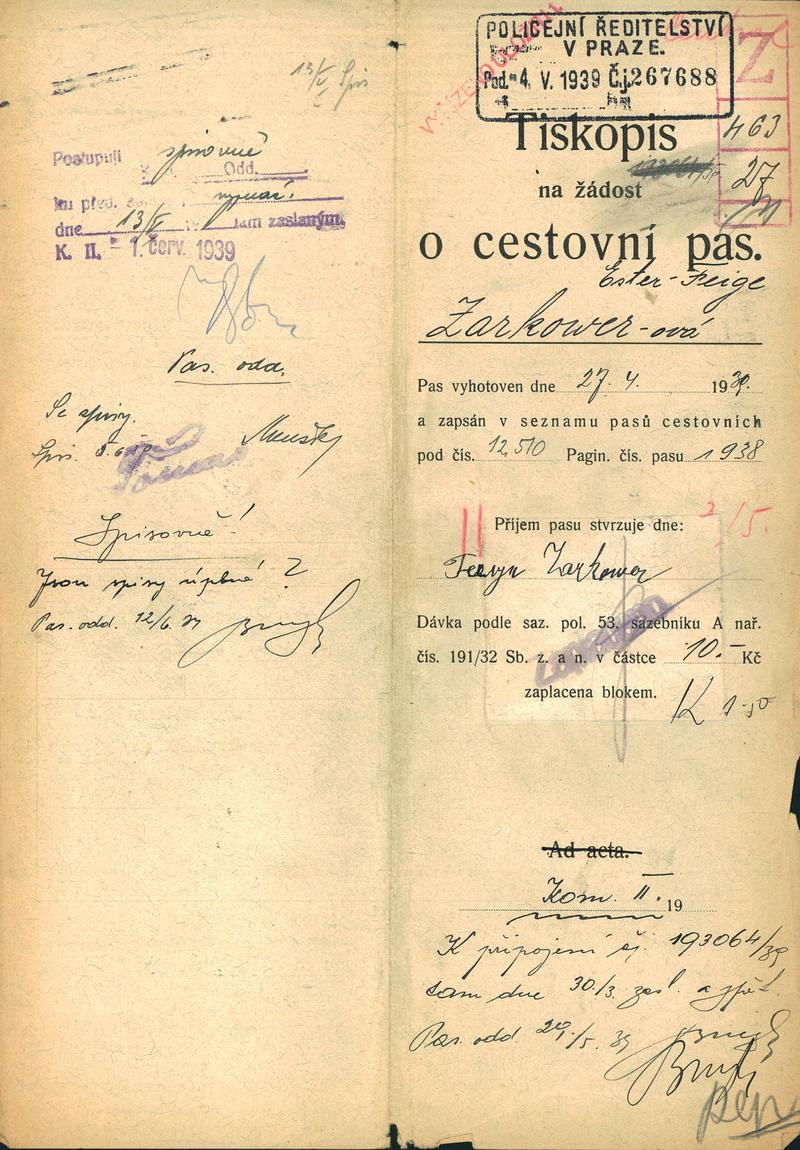 13/V Spis
Postupuji spisovně
Odd.
ku před.
dne 13/V tam zaslaným.
K. II. - 1. červ. 1939
Pas. odd.
Se spisy.
Spisovně!
Jsou spisy úplné?
Pas. odd. 12/6 39
POLICEJNÍ ŘEDITELSTVÍ
V PRAZE.
Pod. 4. V. 1939 Č.j. 267688
Z
463
27
Tiskopis
na žádost
o cestovní pas.
Ester-Feige
Zarkower-ová
Pas vyhotoven dne 27. 4. 1939.
a zapsán v seznamu pasů cestovních
pod čís. 12.510 Pagin. čís. pasu 1938
2/5.
Příjem pasu stvrzuje dne:
Feiga Zarkower
Dávka podle saz. pol. 53, sazebníku A nař.
čís. 191/32 Sb. z. a n. v částce 10.- Kč
zaplacena blokem.
K 1·50
Ad acta.
Kom. II. 19
K připojení čj. 193064/39
tam dne 30./3. zasl. a zpět.
Pas. odd. 29./5. 39